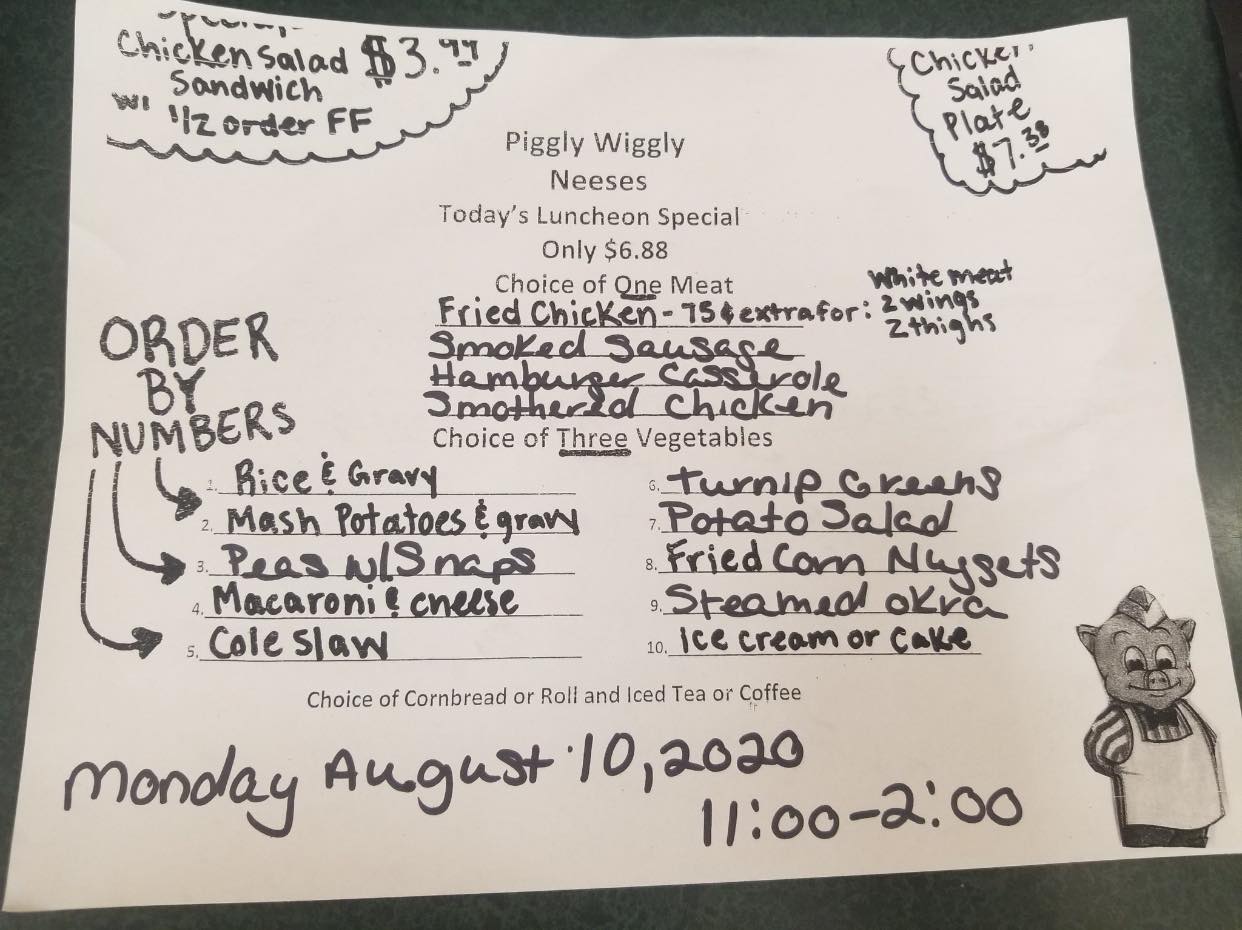 Special,
Chicken Salad $3.99
Sandwich
w/ 1/2 order FF
Chicken
Salad
Plate
$7.38
Piggly Wiggly
Neeses
Today's Luncheon Special
Only $6.88
Choice of One Meat
Fried Chicken - 75¢ extra for: White meat
2 wings
2 thighs
Smoked Sausage
Hamburger Casserole
Smothered Chicken
ORDER
BY
NUMBERS
Choice of Three Vegetables
1. Rice & Gravy
2. Mash Potatoes & gravy
3. Peas w/Snaps
4. Macaroni & cheese
5. Cole Slaw
6. Turnip Greens
7. Potato Salad
8. Fried Corn Nuggets
9. Steamed okra
10. Ice cream or Cake
Choice of Cornbread or Roll and Iced Tea or Coffee
Monday August 10, 2020
11:00-2:00